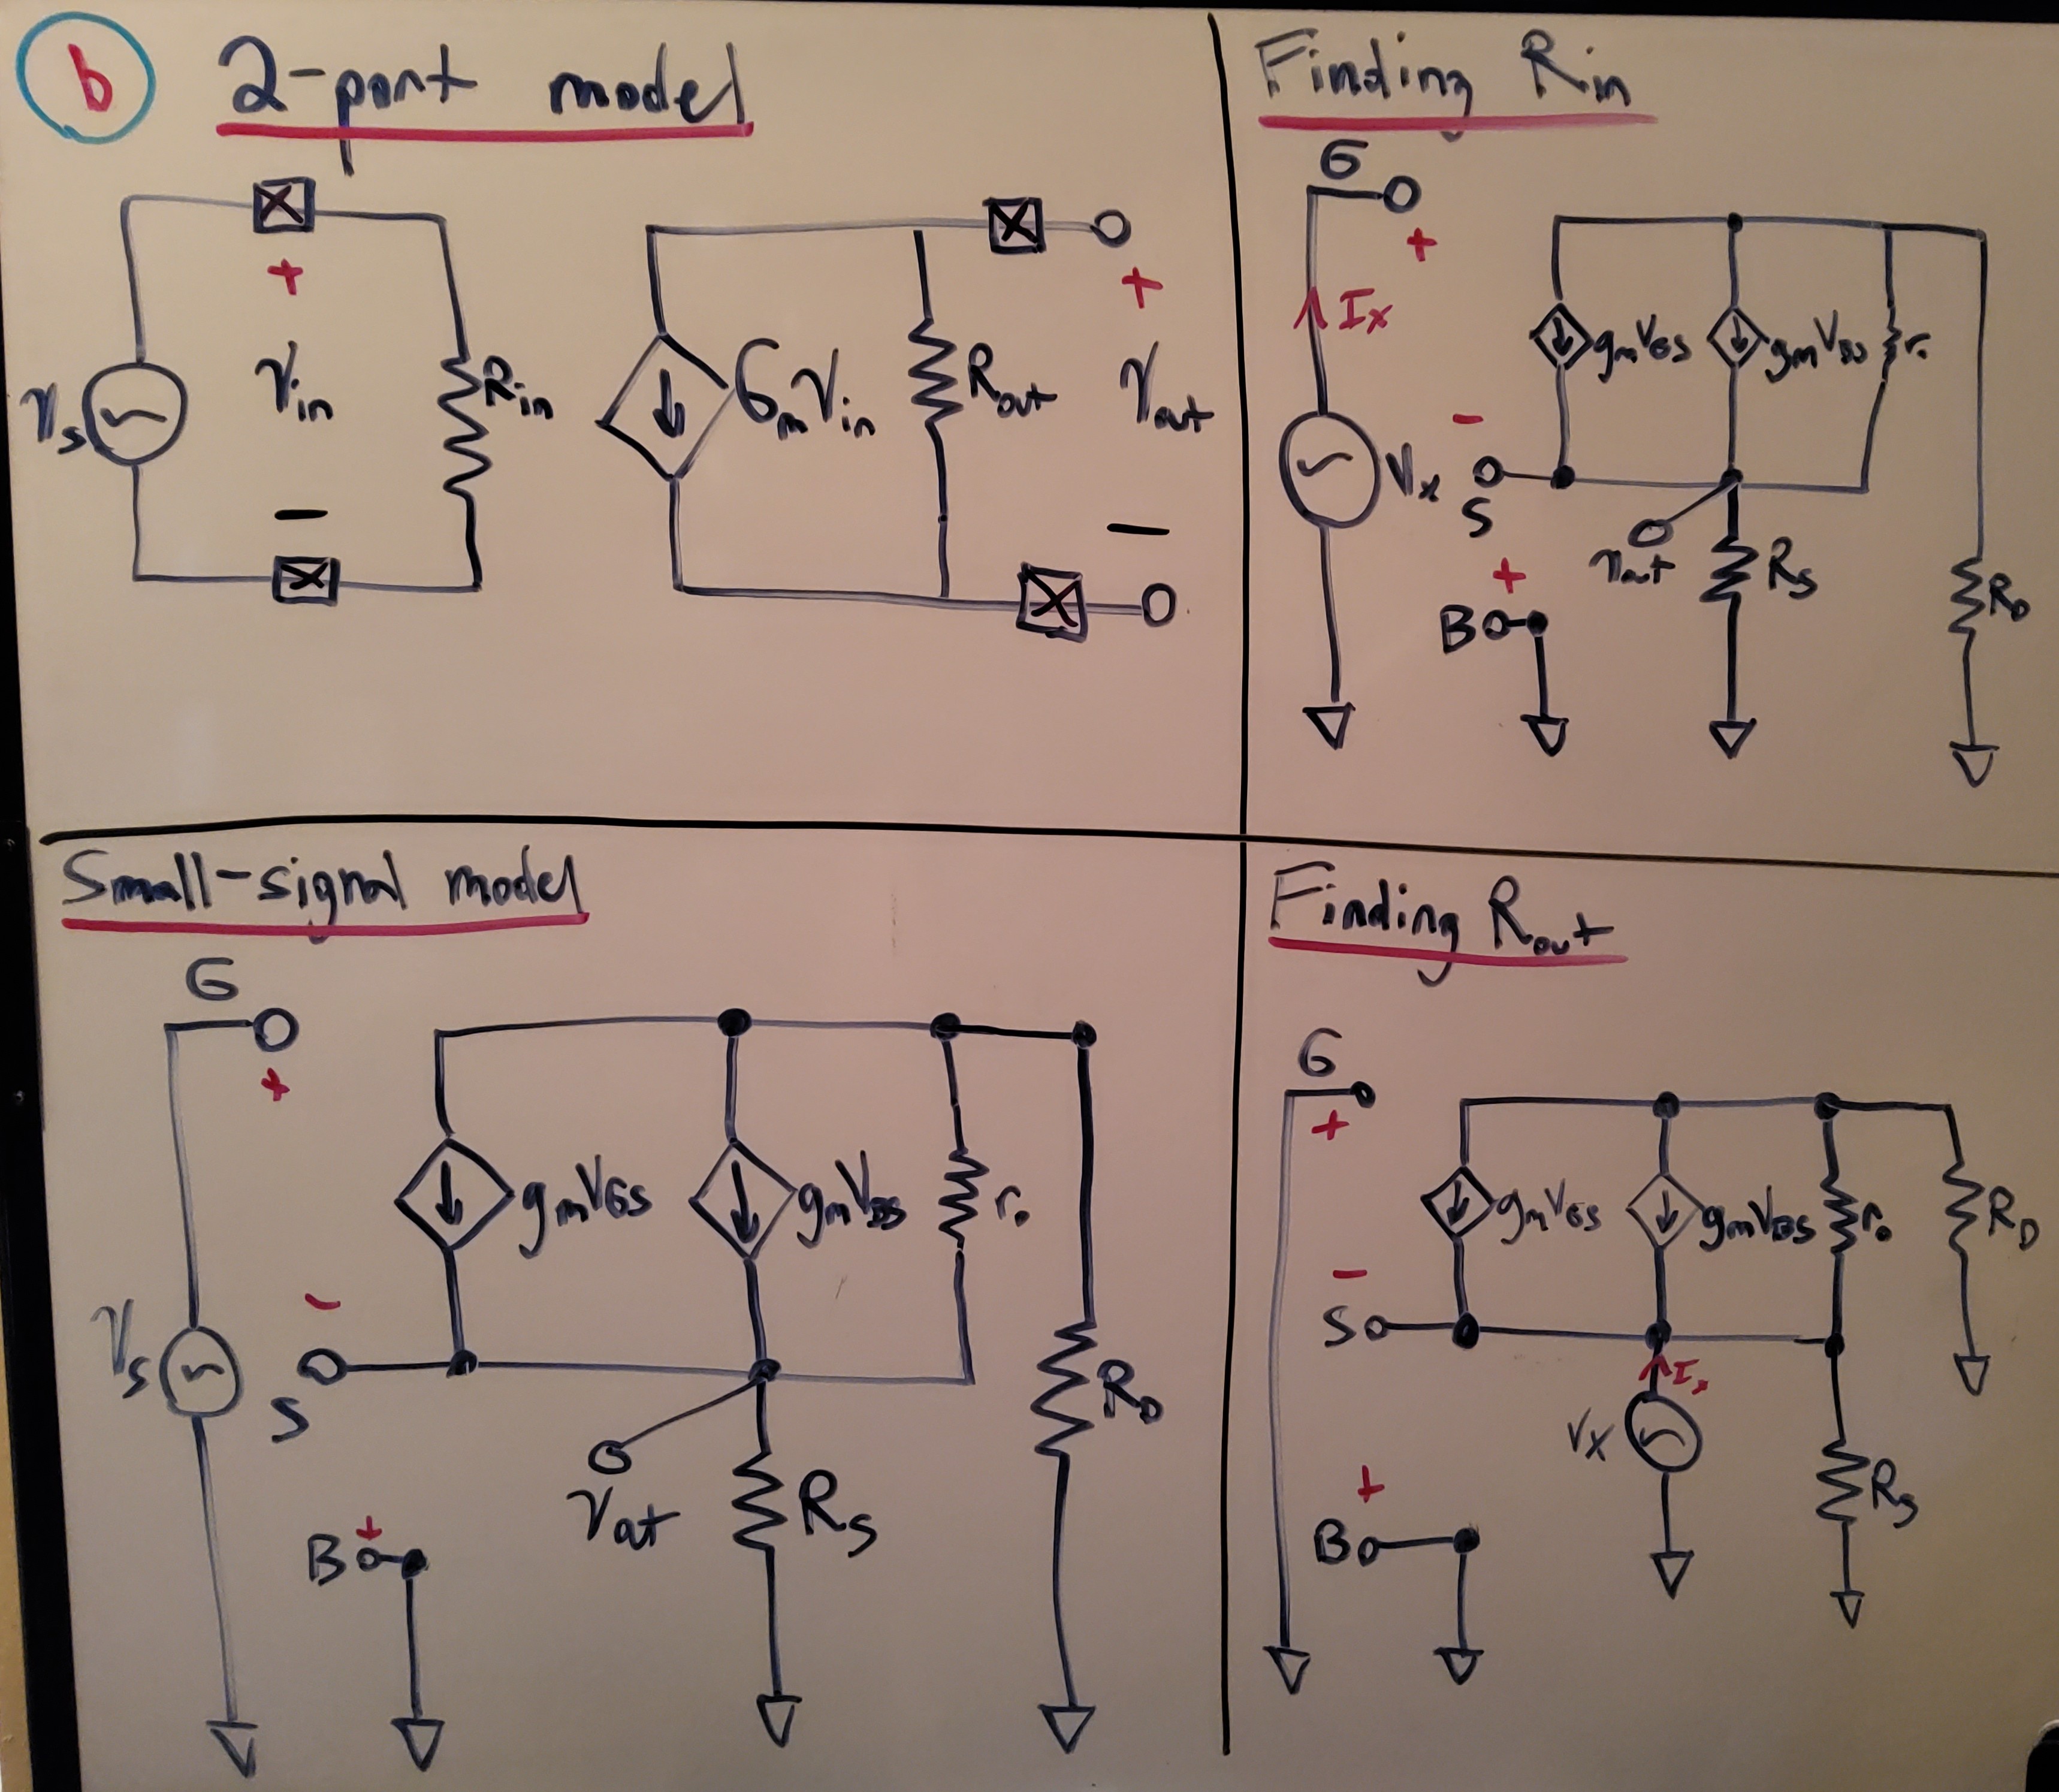 b
2-port model
+
+
Vs
Vin
Rin
GmVin
Rout
Vout
−
−
Finding Rin
G
+
Ix
gmVGS
gmVBS
ro
−
Vx
S
Vout
RS
+
B
RD
Small-signal model
G
+
gmVGS
gmVBS
ro
−
Vs
S
RD
Vout
RS
+
B
Finding Rout
G
+
gmVGS
gmVBS
ro
RD
−
S
Ix
Vx
RS
+
B